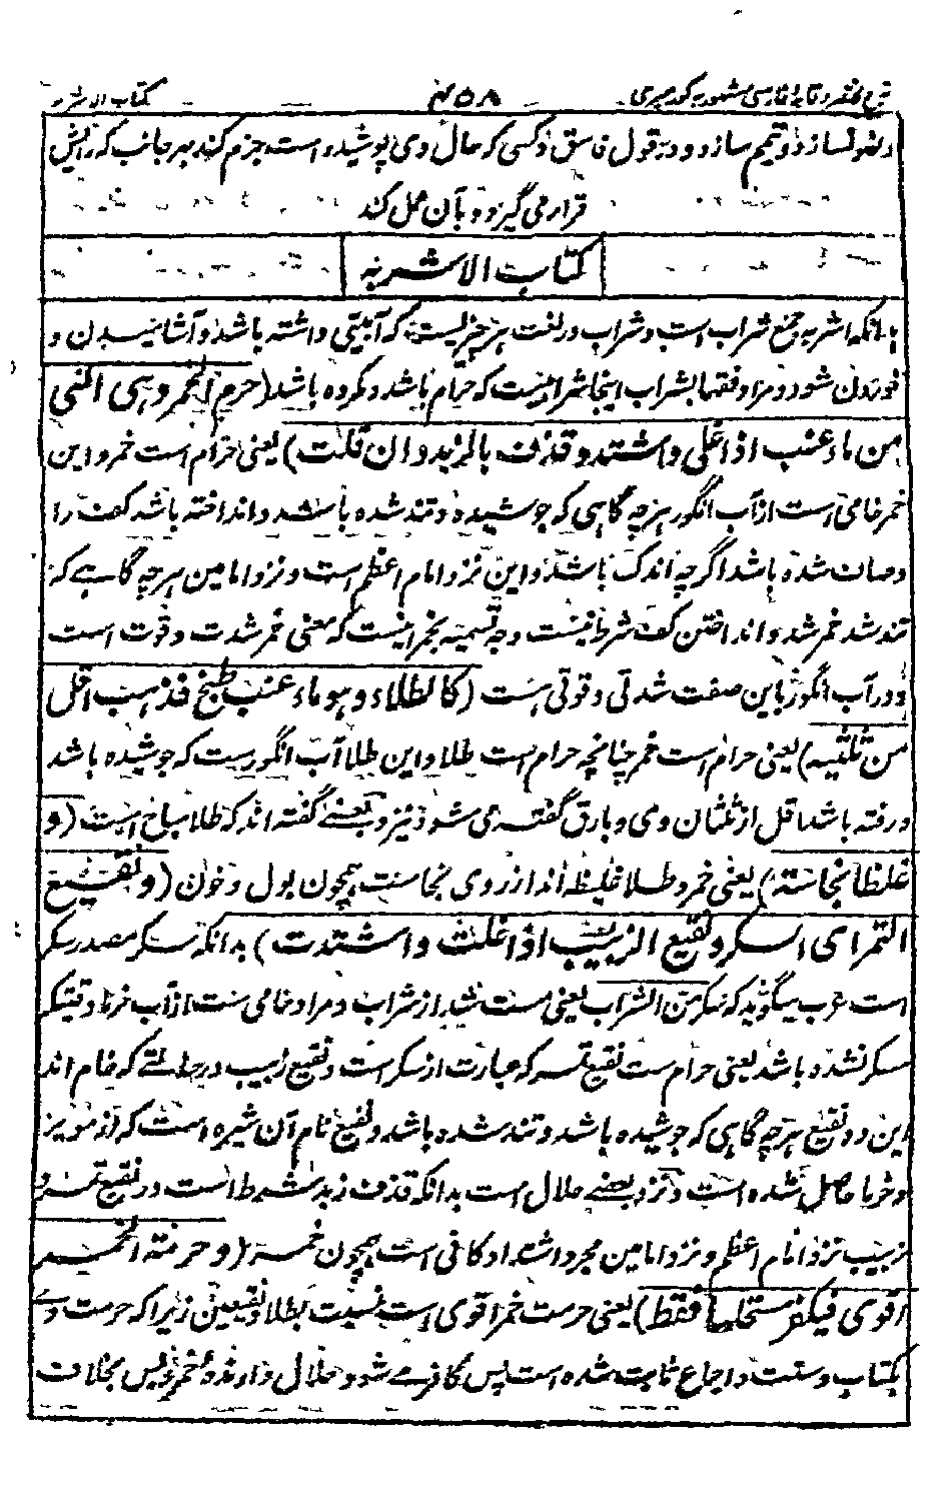 شرح مختصر وقایه فارسی مشهور به کورمیری ۴۵۸ کتاب الاشربه
نسازد و تیمم سازد و در قول فاسق و کسی که حال وی پوشیده است جزم کند بهر جانب که رایش
قرار می گیرد و بآن عمل کند
کتاب الاشربه
بدانکه اشربه جمع شراب است و شراب در لغت هر چیزیست که آبیتی داشته باشد و آشامیدن و
خوردن شود و مراد فقها بشراب اینجا شرابیست که حرام باشد و مکروه باشد (حرم الخمر و هی النی
من ماء عنب اذا غلی و اشتد و قذف بالزبد و ان قلت) یعنی حرام است خمر و این
خمر خامی است از آب انگور هر چه گاهی که جوشیده و تند شده باشد و انداخته باشد کف را
و صاف شده باشد اگر چه اندک باشد و این نزد امام اعظم است و نزد امامین هر چه گاهے که
تند شد خمر شد و انداختن کف شرط نیست وجه تسمیه بخمر اینست که معنی خمر شدت و قوت است
و در آب انگور باین صفت شدتی و قوتی هست (کالطلاء و هو ماء عنب طبخ فذهب اقل
من ثلثیه) یعنی حرام است خمر چنانچه حرام است طلا و این طلا آب انگوریست که جوشیده باشد
و رفته باشد اقل از ثلثان وی و بارق گفته می شود نیز و بعضے گفته اند که طلا مباح است (و
غلظا نجاسته) یعنی خمر و طلا غلیظ اند از روی نجاست همچون بول و خون (و نقیع
التمر ای السکر و نقیع الزبیب اذا غلت و اشتدت) بدانکه سکر مصدر سکر
است عرب میگوید که سکر من الشراب یعنی مست شد از شراب و مراد خامی ست از آب خرما وقتیکه
سکر نشده باشد یعنی حرام ست نقیع تمر که عبارت از سکر است و نقیع زبیب در حالتے که خام اند
این دو نقیع هر چه گاهی که جوشیده باشد و تند شده باشد و نقیع نام آن شیره است که از مویز
و خرما حاصل شده است و نزد بعضے حلال است بدانکه قذف زبد شرط است در نقیع تمر و
زبیب نزد امام اعظم و نزد امامین مجرد اشتداد کافی است همچون خمر (و حرمة الخمر
اقوی فیکفر مستحلها فقط) یعنی حرمت خمر اقوی است نسبت بطلا و نقیعین زیرا که حرمت وے
بکتاب و سنت و اجماع ثابت شده است پس کافر می شود حلال دارندهٔ خمر و لیس بخلاف